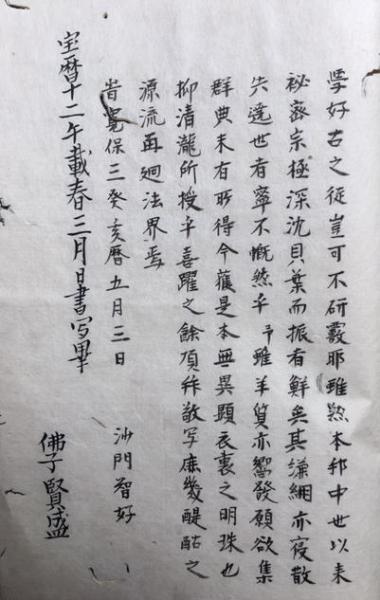 斈好古之徒豈可不研覈耶雖然本邦中世以来
祕密宗極深沈貝葉而振者鮮矣其縹緗亦寝散
失逹也者寧不慨然乎予雖羊質亦嚮發願欲集
群典未有所得今獲是本無異顕衣裏之明珠也
抑清瀧所授乎喜躍之餘頂拜敬写庶幾醍醐之
源流再廻法界焉
旹寛保三癸亥暦五月三日
沙門智好
宝暦十二午載春三月日書写畢
佛子賢盛